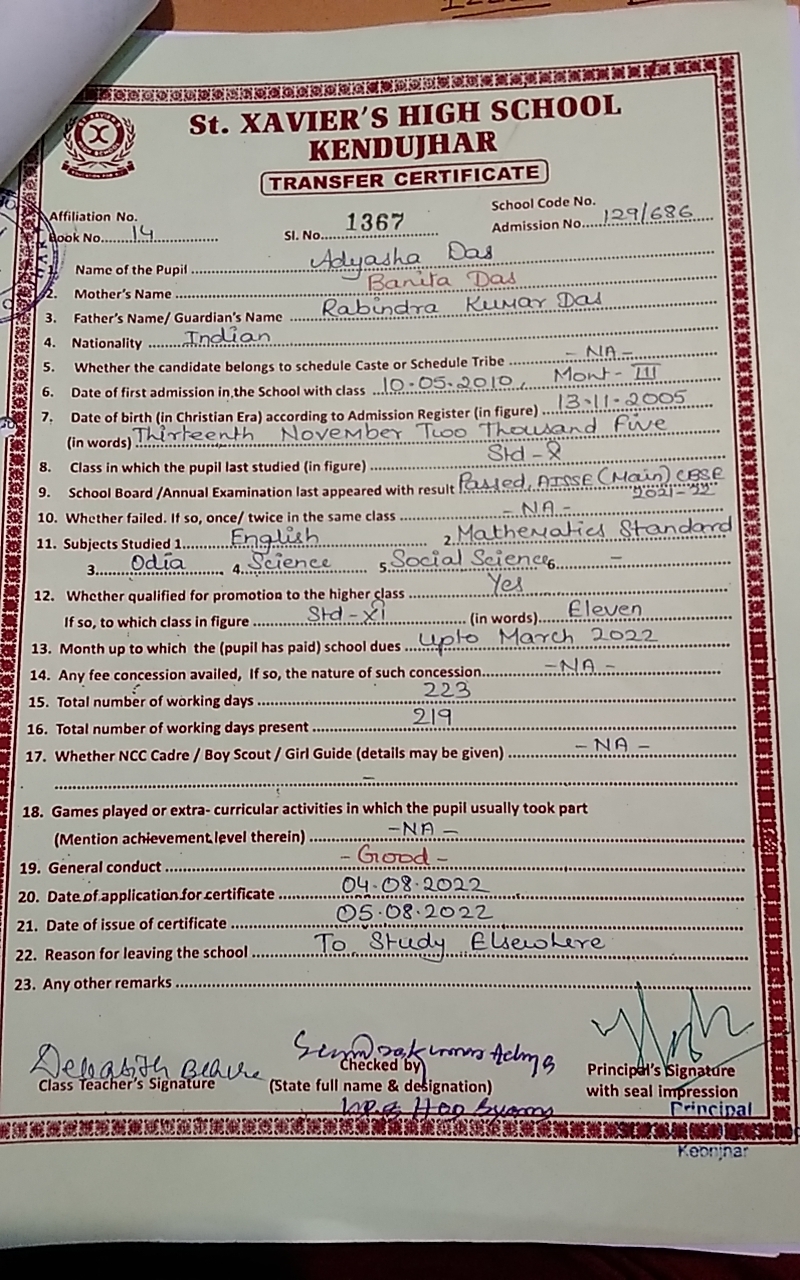 St. XAVIER'S HIGH SCHOOL
KENDUJHAR
TRANSFER CERTIFICATE
Affiliation No.
School Code No.
Book No. 14 Sl. No. 1367 Admission No. 129/686
1. Name of the Pupil Adyasha Das
2. Mother's Name Banita Das
3. Father's Name/ Guardian's Name Rabindra Kumar Das
4. Nationality Indian
5. Whether the candidate belongs to schedule Caste or Schedule Tribe - NA -
6. Date of first admission in the School with class 10.05.2010, Mont - III
7. Date of birth (in Christian Era) according to Admission Register (in figure) 13.11.2005
(in words) Thirteenth November Two Thousand Five
8. Class in which the pupil last studied (in figure) Std - X
9. School Board /Annual Examination last appeared with result Passed, AISSE (Main) CBSE
2021-22
10. Whether failed. If so, once/ twice in the same class - NA -
11. Subjects Studied 1. English 2. Mathematics Standard
3. Odia 4. Science 5. Social Science 6. -
12. Whether qualified for promotion to the higher class Yes
If so, to which class in figure Std - XI (in words) Eleven
13. Month up to which the (pupil has paid) school dues upto March 2022
14. Any fee concession availed, If so, the nature of such concession - NA -
15. Total number of working days 223
16. Total number of working days present 219
17. Whether NCC Cadre / Boy Scout / Girl Guide (details may be given) - NA -
-
18. Games played or extra- curricular activities in which the pupil usually took part
(Mention achievement level therein) - NA -
19. General conduct - Good -
20. Date of application for certificate 04.08.2022
21. Date of issue of certificate 05.08.2022
22. Reason for leaving the school To Study Elsewhere
23. Any other remarks
Class Teacher's Signature
Checked by
(State full name & designation)
Principal's Signature
with seal impression
Principal
Keonjhar